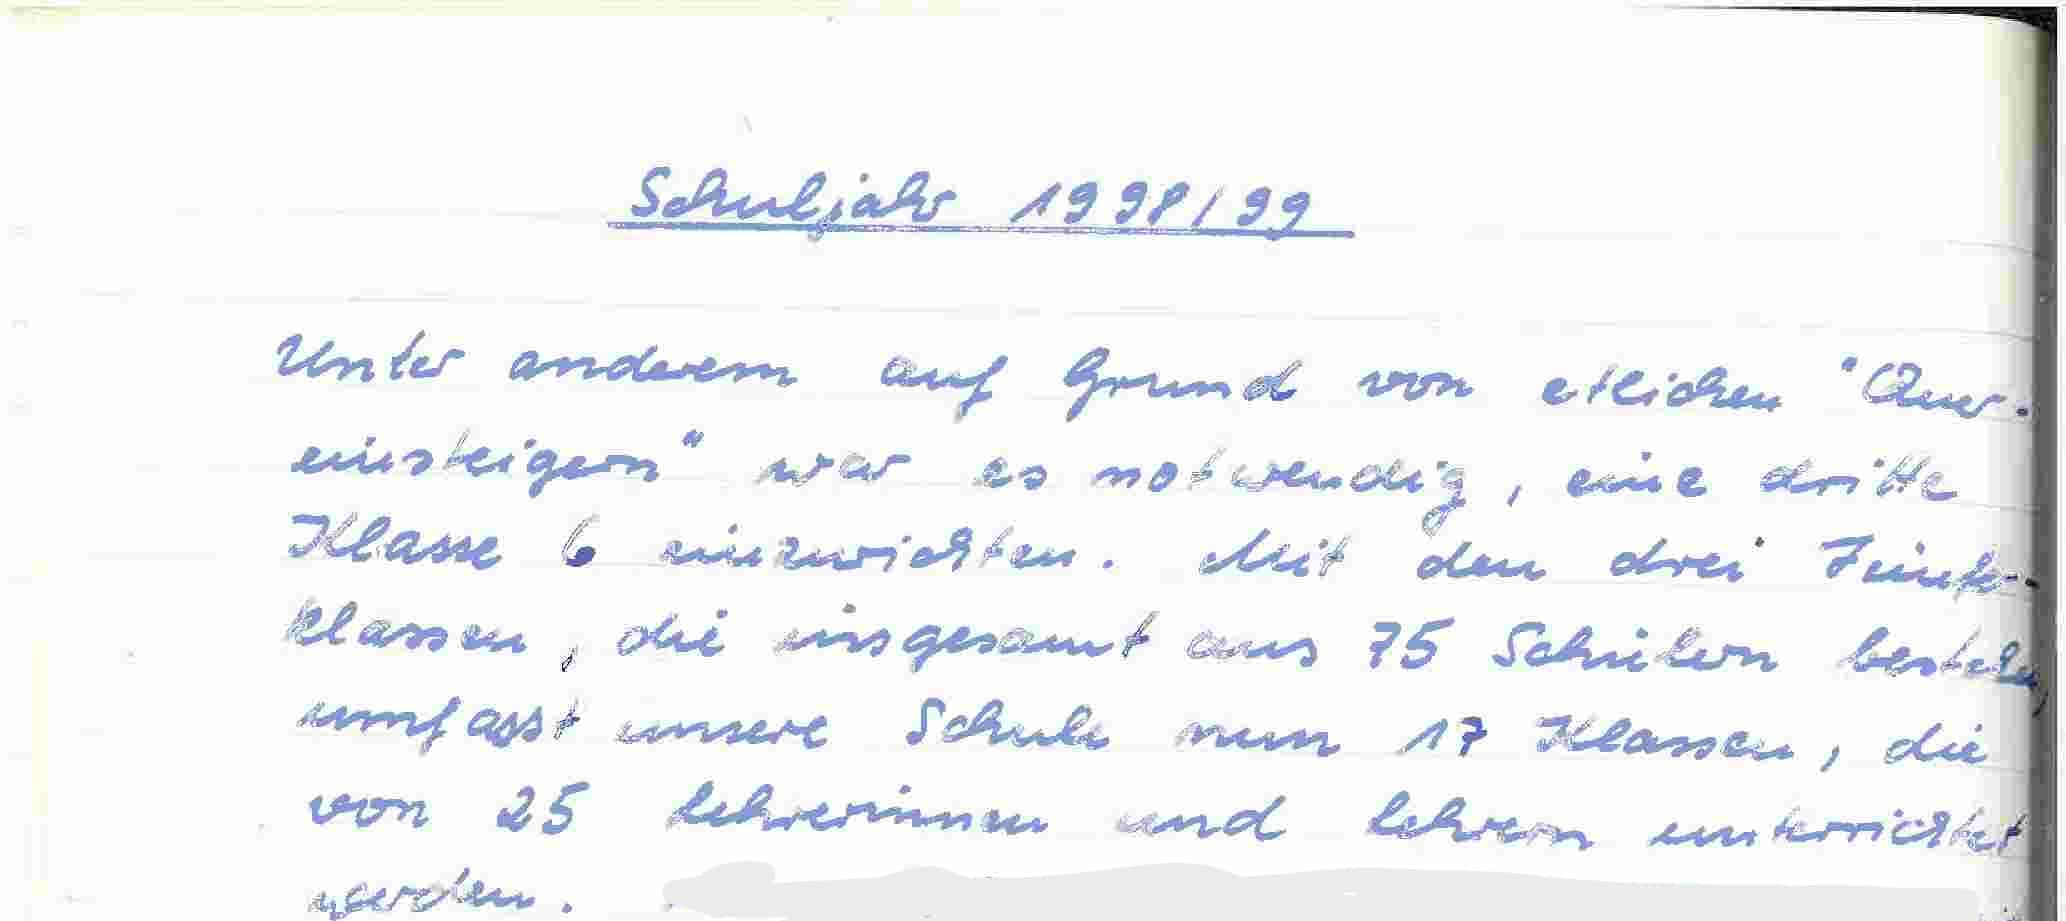 Schuljahr 1998/99
Unter anderem auf Grund von etlichen "Quer-
einsteigern" war es notwendig, eine dritte
Klasse 6 einzurichten. Mit den drei Fünft-
klassen, die insgesamt aus 75 Schülern bestehen,
umfasst unsere Schule nun 17 Klassen, die
von 25 Lehrerinnen und Lehrern unterrichtet
werden.